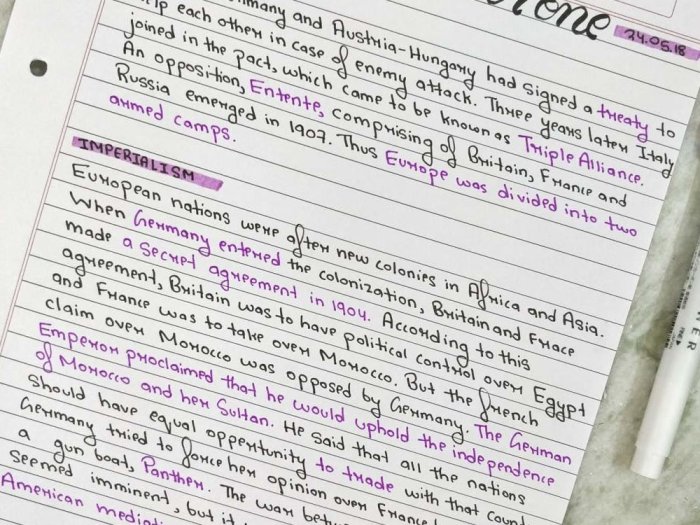 one
24.05.18
lp each other in case of enemy attack. Three years later Italy
many and Austria-Hungary had signed a treaty to
joined in the pact, which came to be known as Triple Alliance.
An opposition, Entente, comprising of Britain, France and
Russia emerged in 1907. Thus Europe was divided into two
armed camps.
IMPERIALISM
European nations were after new colonies in Africa and Asia.
When Germany entered the colonization, Britain and Frace
made a secret agreement in 1904. According to this
agreement, Britain was to have political control over Egypt
and France was to take over Morocco. But the french
claim over Morocco was opposed by Germany. The German
Emperor proclaimed that he would uphold the independence
of Morocco and her Sultan. He said that all the nations
should have equal oppertunity to trade with that coun
Germany tried to force her opinion over France b
a gun boat, Panther. The war betw
seemed imminent, but it
American media